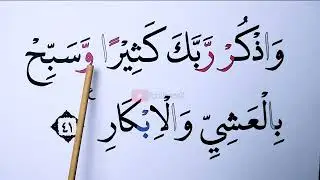 وَاذْكُرْ رَّبَّكَ كَثِيْرًا وَّسَبِّحْ
بِالْعَشِيِّ وَالْاِبْكَارِ ع ٤١